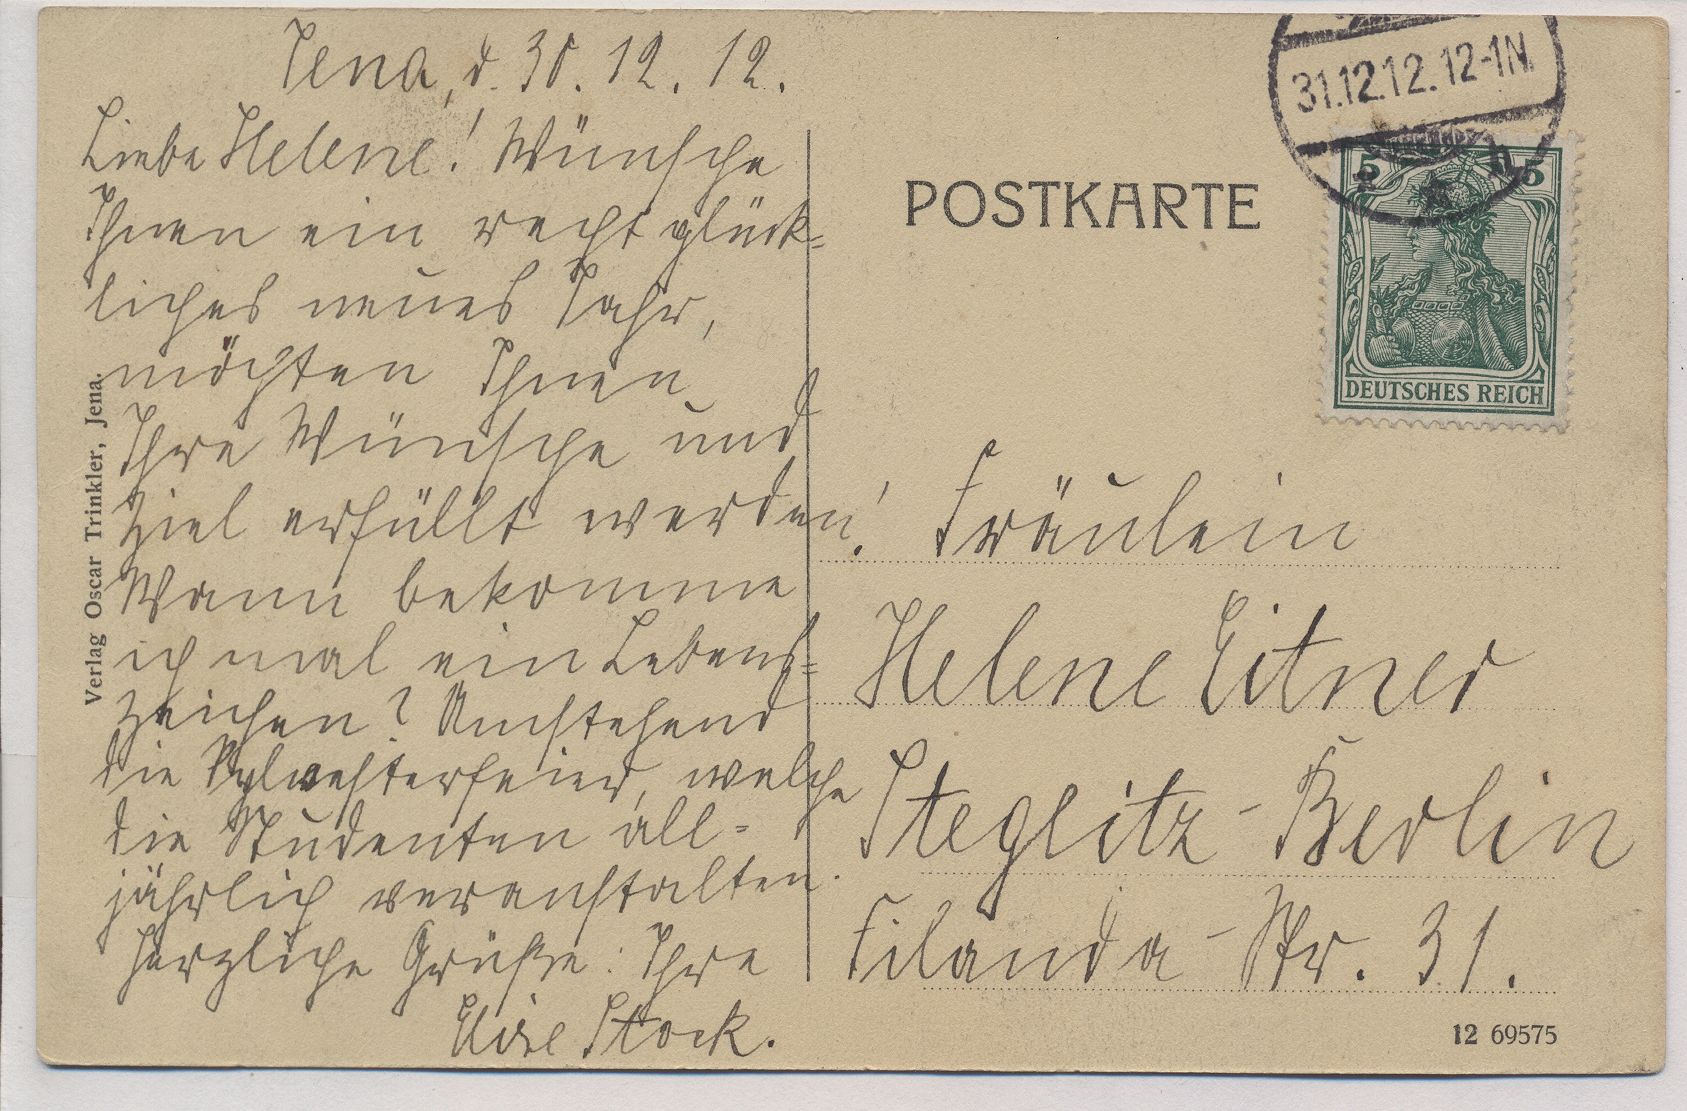 Jena, d. 30. 12. 12.
Liebe Helene! Wünsche
Ihnen ein recht glück-
liches neues Jahr,
möchten Ihnen
Ihre Wünsche und
Ziel erfüllt werden!
Wann bekomme
ich mal ein Lebens-
zeichen? Umstehend
die Sylvesterfeier, welche
die Studenten all-
jährlich veranstalten.
Herzliche Grüße. Ihre
Elise Stock.
Verlag Oscar Trinkler, Jena.
POSTKARTE
31.12.12. 12-1N.
5 5
DEUTSCHES REICH
Fräulein
Helene Eitner
Steglitz-Berlin
Filanda-Str. 31.
12 69575